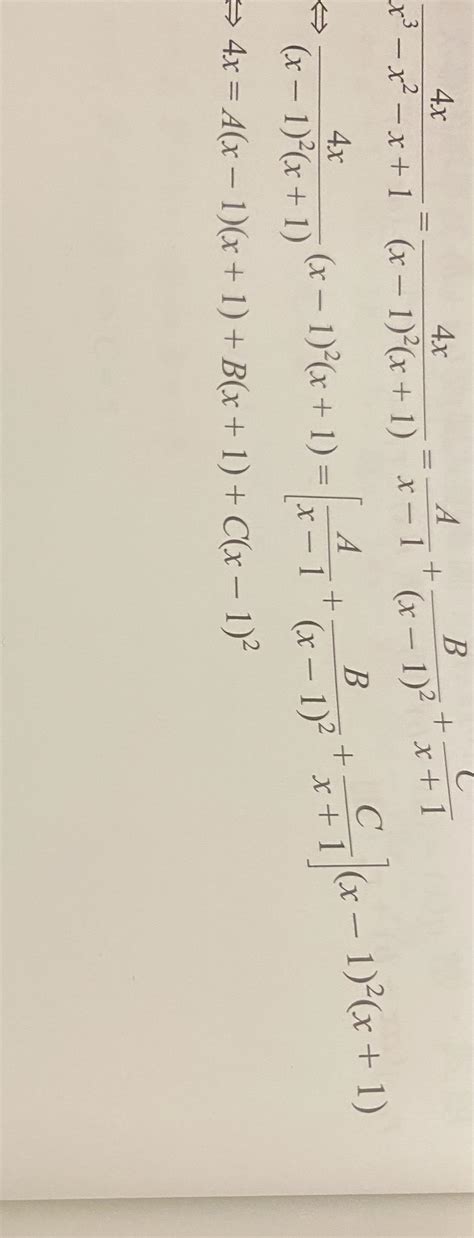 4x/(x³ − x² − x + 1) = 4x/((x − 1)²(x + 1)) = A/(x − 1) + B/((x − 1)²) + C/(x + 1)
⇔ 4x/((x − 1)²(x + 1)) (x − 1)²(x + 1) = [A/(x − 1) + B/((x − 1)²) + C/(x + 1)](x − 1)²(x + 1)
⇔ 4x = A(x − 1)(x + 1) + B(x + 1) + C(x − 1)²